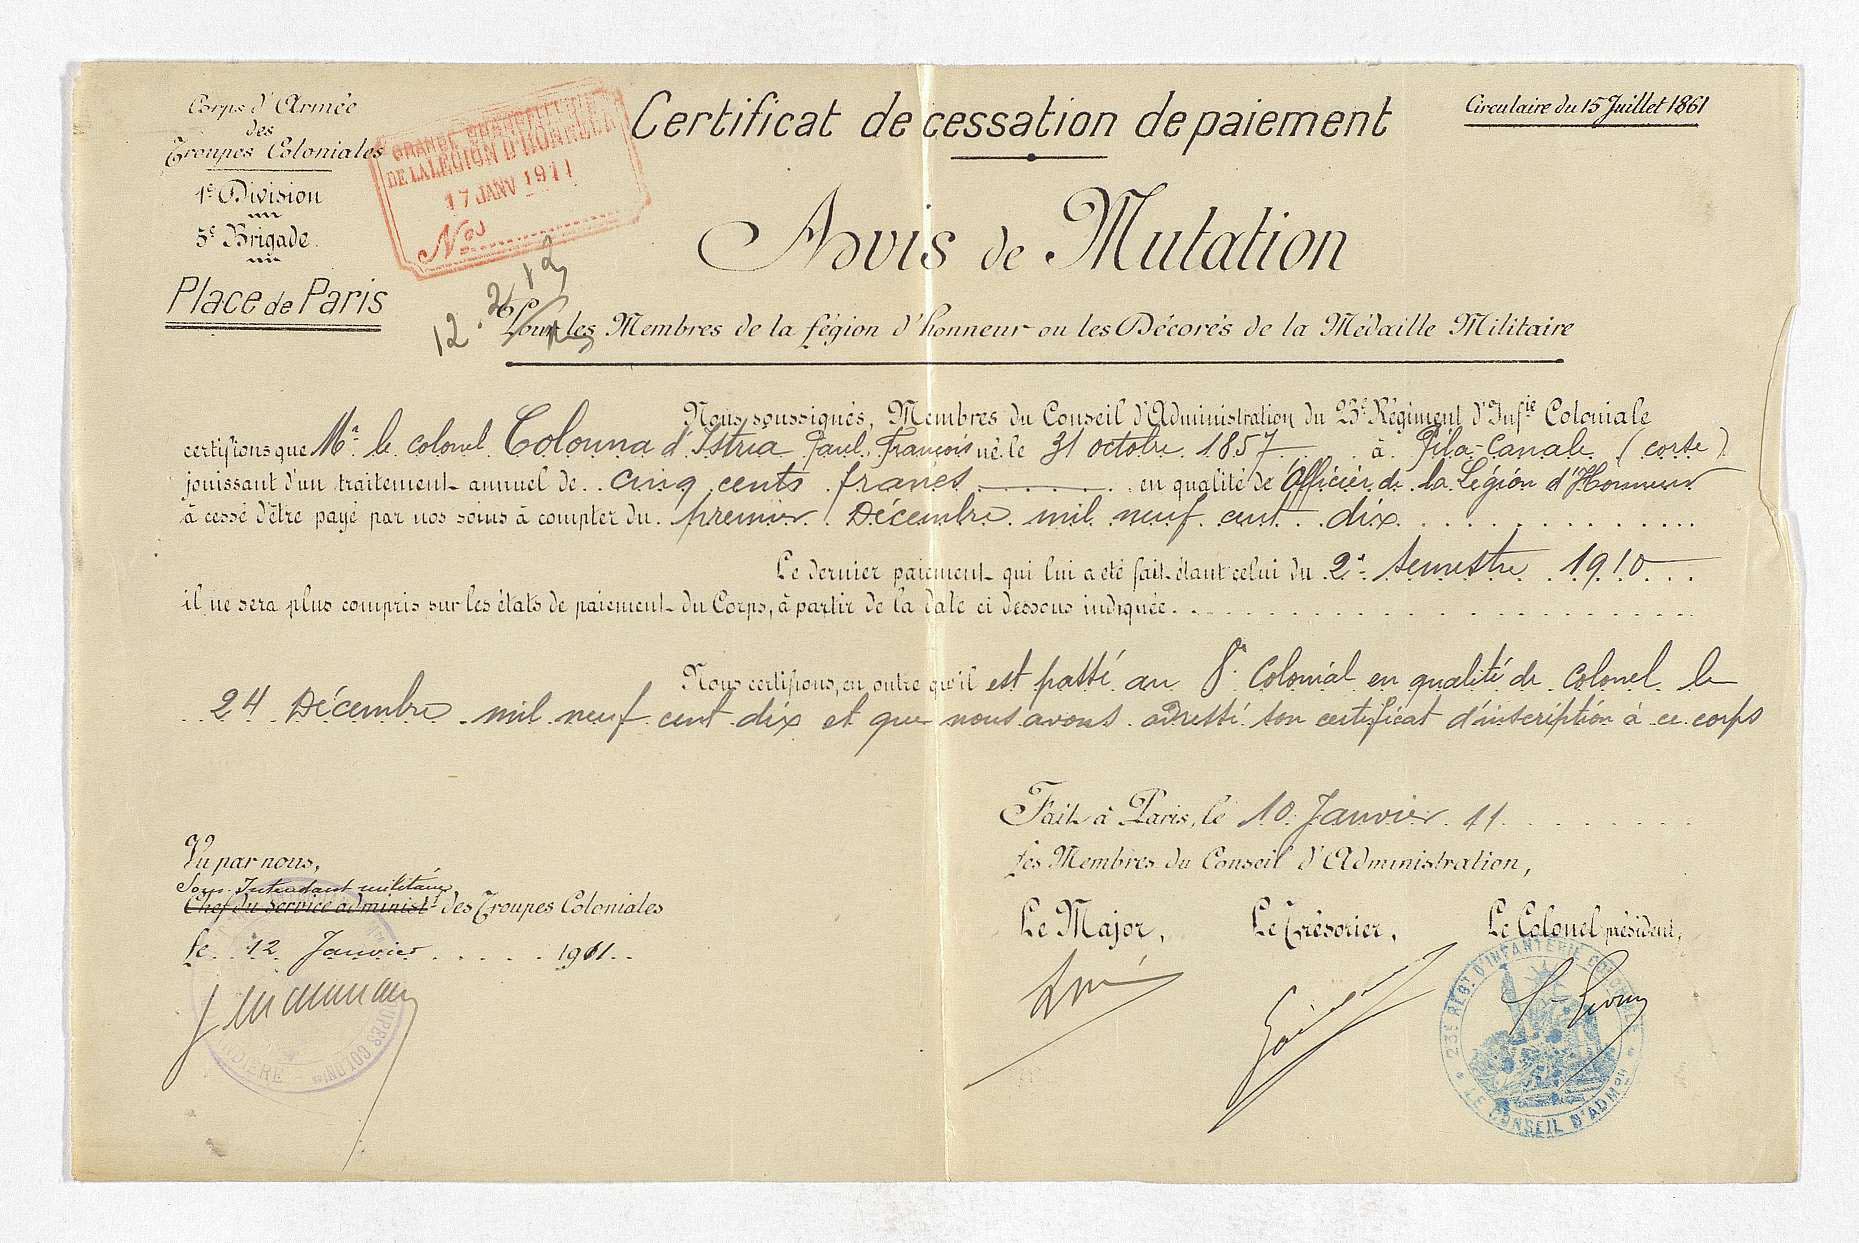 Corps d'Armée
des
Troupes Coloniales
1e Division
5e Brigade.
Place de Paris
GRANDE CHANCELLERIE
DE LA LÉGION D'HONNEUR
17 JANV 1911
Nos
12.2.12
Certificat de cessation de paiement
Circulaire du 15 Juillet 1861
Avis de Mutation
Pour les Membres de la Légion d'honneur ou les Décorés de la Médaille Militaire
Nous soussignés, Membres du Conseil d'Administration du 23e Régiment d'Infie Coloniale
certifions que Mr le Colonel Colonna d'Istria Paul, François né le 31 octobre 1857 à Pila-Canale (corse)
jouissant d'un traitement annuel de cinq cents francs en qualité de Officier de la Légion d'Honneur
à cessé d'être payé par nos soins à compter du premier Décembre mil neuf cent dix
Le dernier paiement qui lui a été fait étant celui du 2e semestre 1910
il ne sera plus compris sur les états de paiement du Corps, à partir de la date ci dessous indiquée
Nous certifions, en outre qu'il est passé au 8e Colonial en qualité de Colonel le
24 Décembre mil neuf cent dix et que nous avons adressé son certificat d'inscription à ce corps
Fait à Paris, le 10 Janvier 11
Les Membres du Conseil d'Administration,
Le Major, Le Trésorier, Le Colonel président,
Vu par nous,
Sous-Intendant militaire
Chef du Service administf des Troupes Coloniales
le 12 Janvier 1911
23e REGT D'INFANTERIE COLONIALE
LE CONSEIL D'ADMON